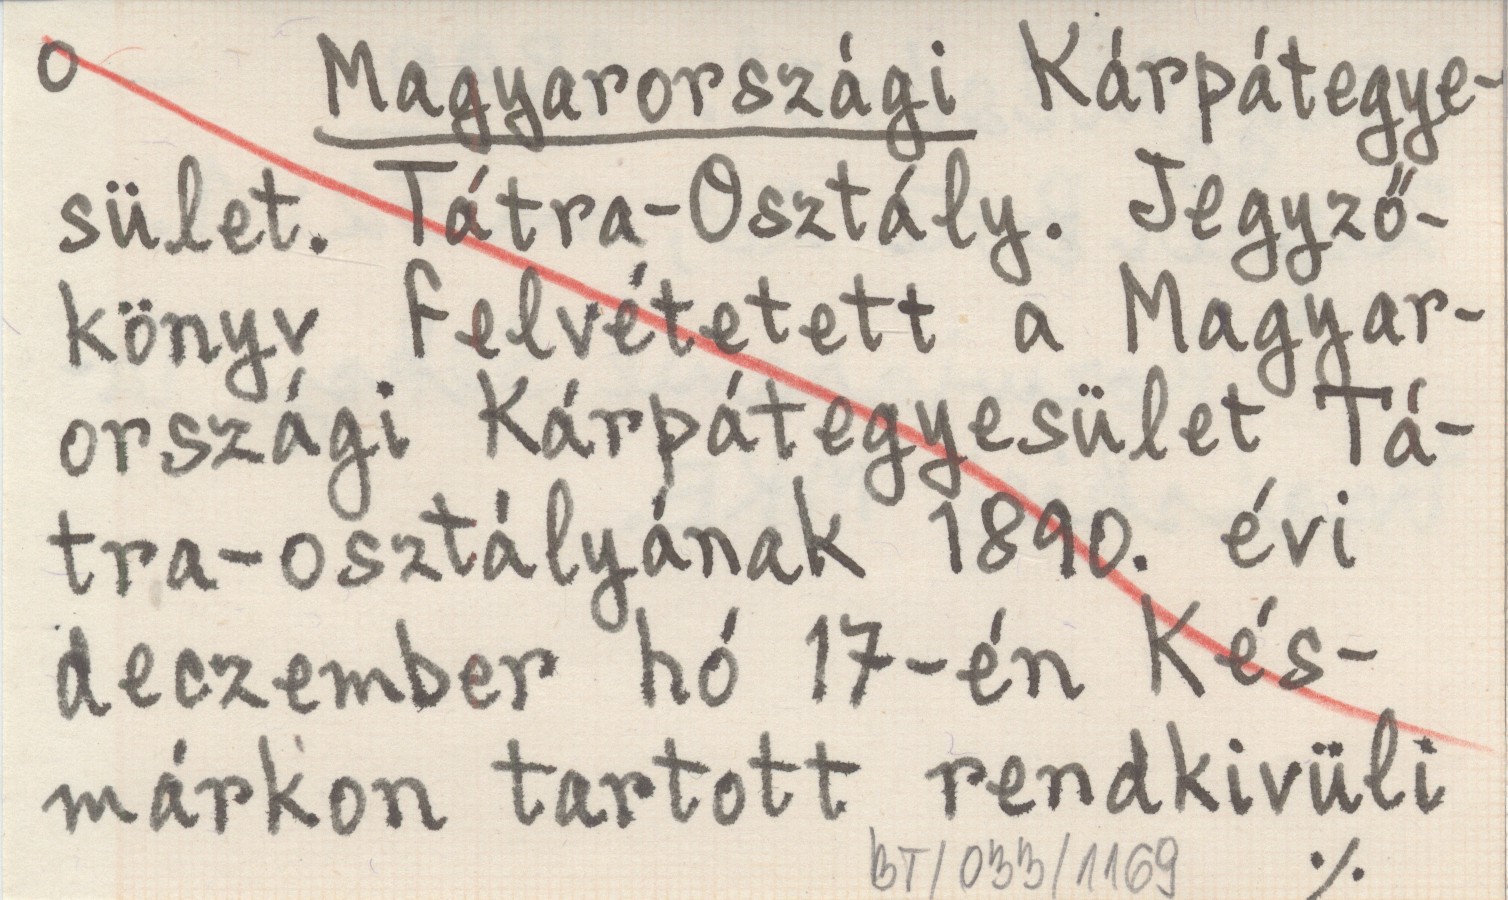 o Magyarországi Kárpátegye-
sület. Tátra-Osztály. Jegyző-
könyv felvétetett a Magyar-
országi Kárpátegyesület Tá-
tra-osztályának 1890. évi
deczember hó 17-én Kés-
márkon tartott rendkivüli
BT/033/1169 ./.